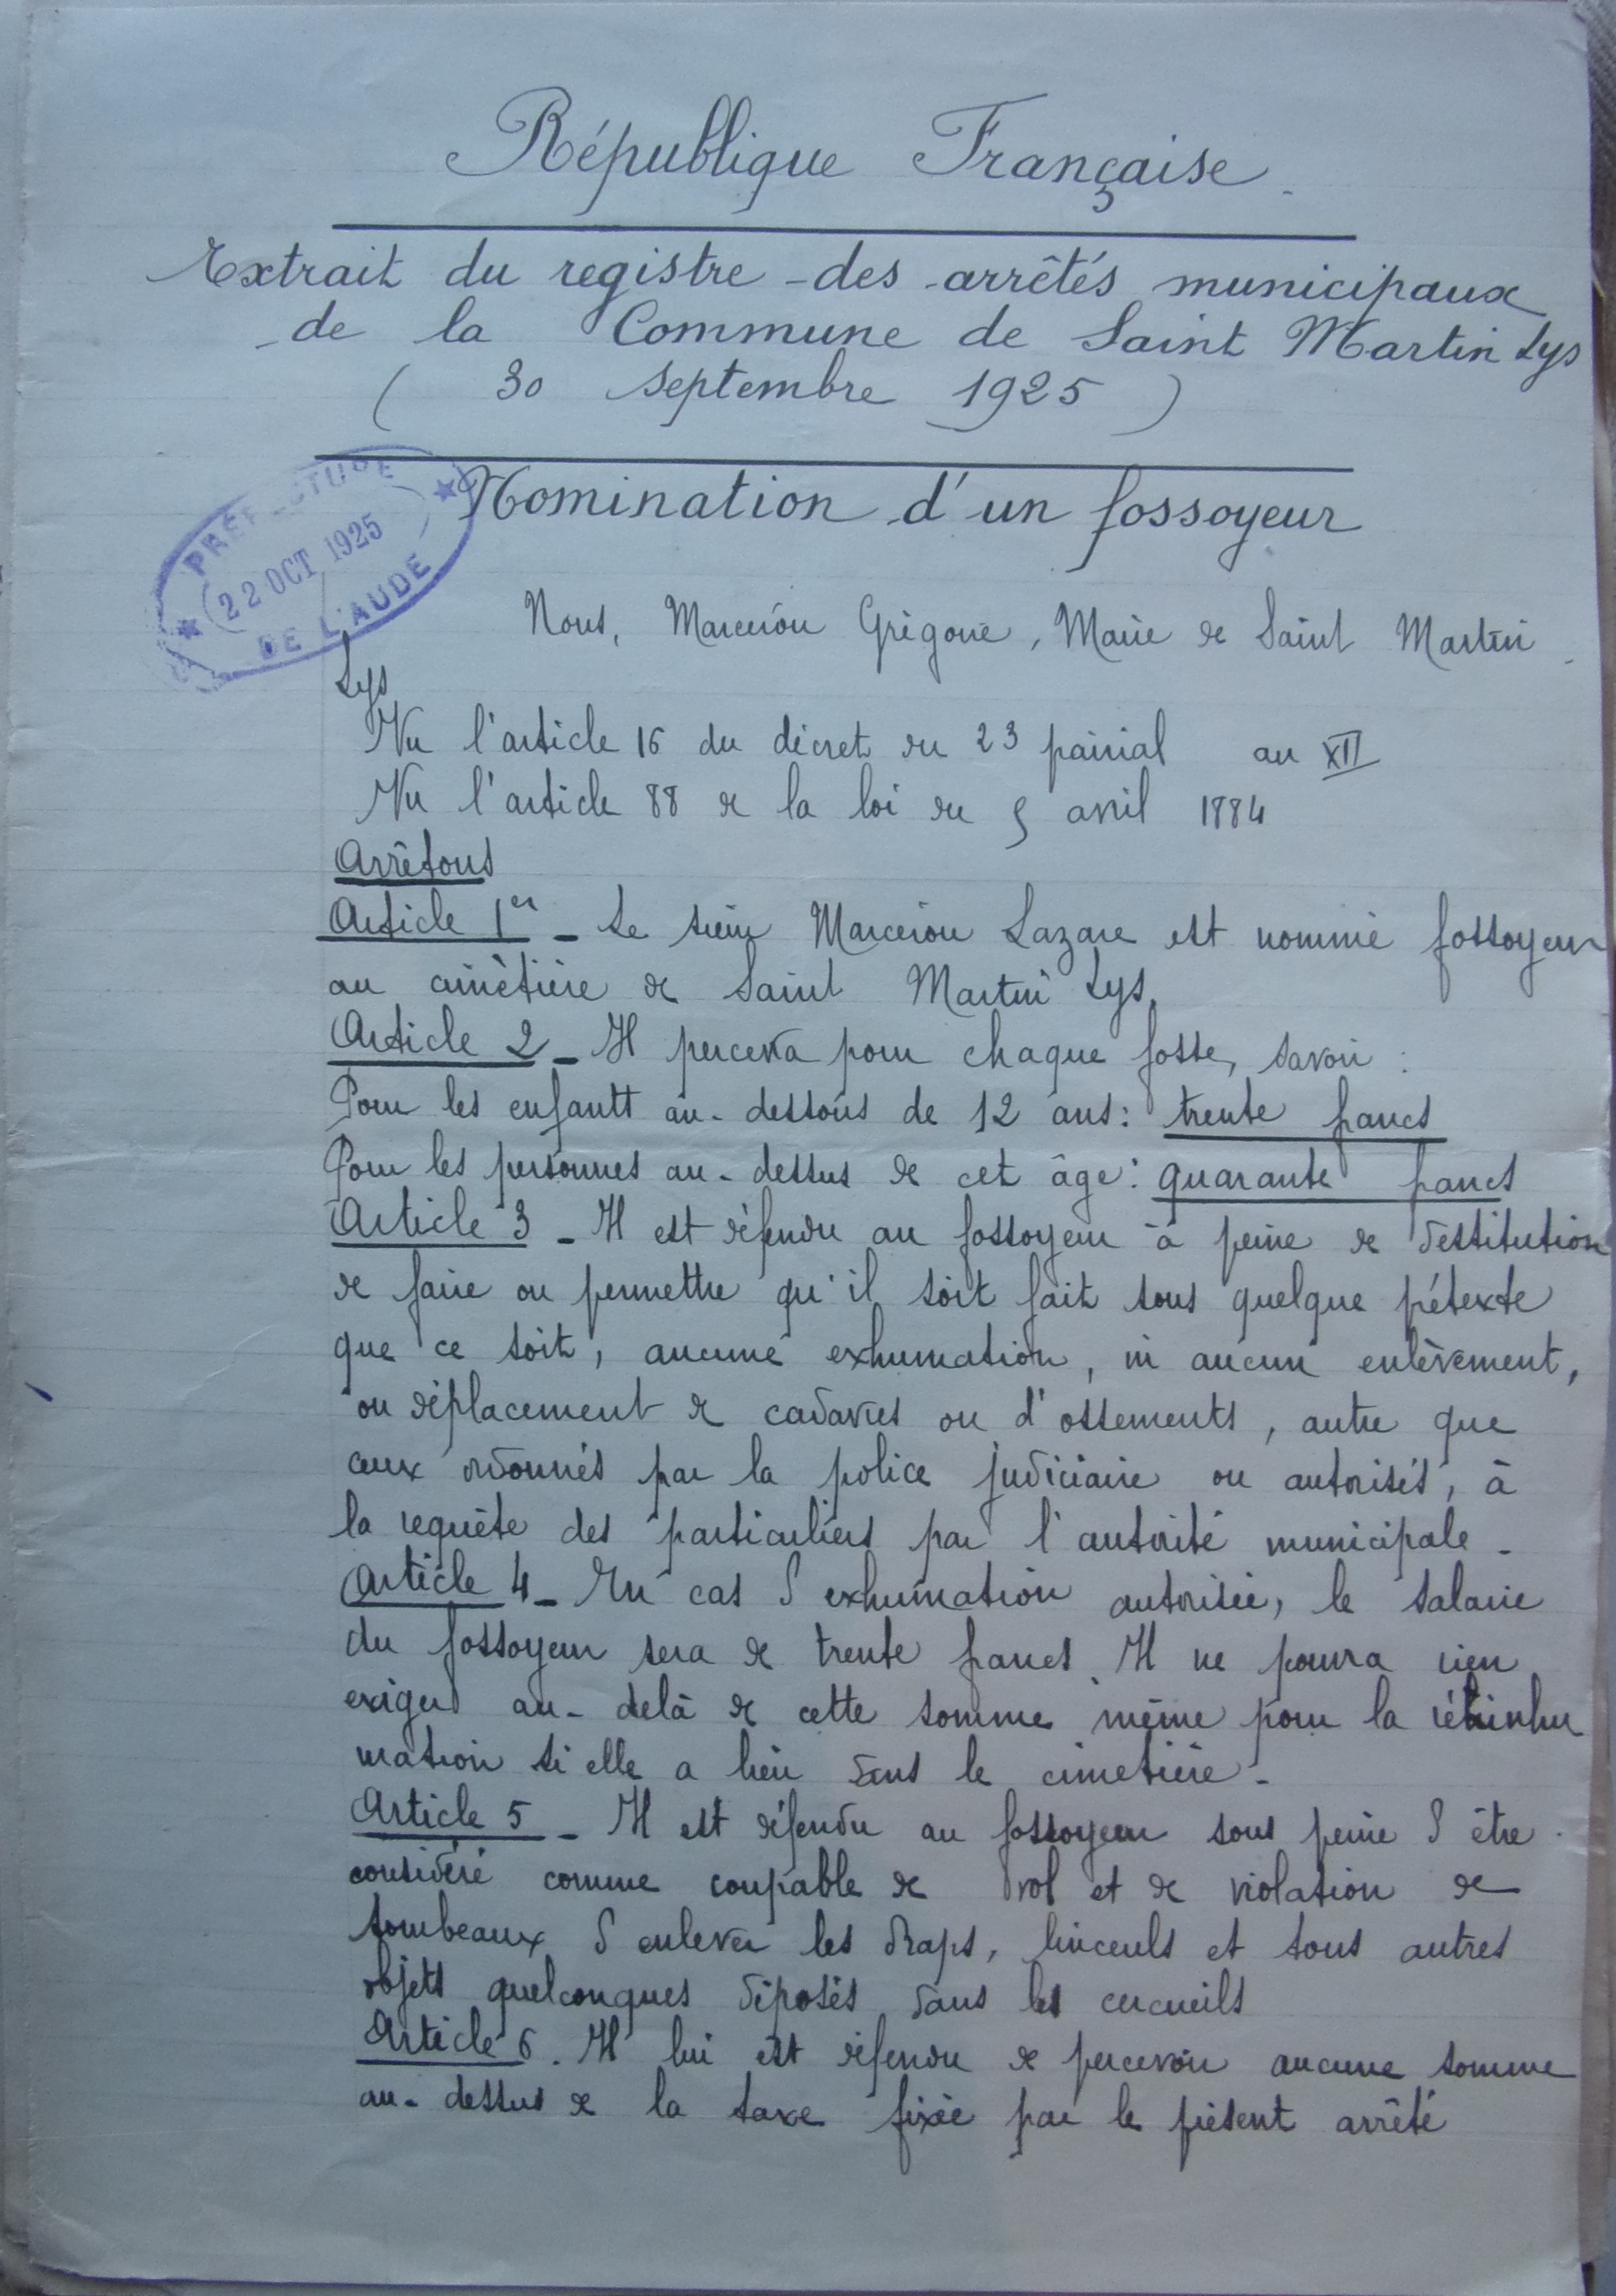 République Française
Extrait du registre des arrêtés municipaux
de la Commune de Saint Martin Lys
( 30 septembre 1925 )
PRÉFECTURE
22 OCT 1925
DE L'AUDE
Nomination d'un fossoyeur
Nous, Marcerou Grégoire, Maire de Saint Martin
Lys
Vu l'article 16 du décret du 23 prairial an XII
Vu l'article 88 de la loi du 5 avril 1884
Arrêtons
Article 1er - Le sieur Marcerou Lazare est nommé fossoyeur
au cimètière de Saint Martin Lys.
Article 2 - Il percevra pour chaque fosse, savoir :
Pour les enfants au-dessous de 12 ans : trente francs
Pour les personnes au-dessus de cet âge : quarante francs
Article 3 - Il est défendu au fossoyeur à peine de destitution
de faire ou permettre qu'il soit fait sous quelque prétexte
que ce soit, aucune exhumation, ni aucun enlèvement,
ou déplacement de cadavres ou d'ossements, autre que
ceux ordonnés par la police judiciaire ou autorisés, à
la requête des particuliers par l'autorité municipale -
Article 4 - En cas d'exhumation autorisée, le salaire
du fossoyeur sera de trente francs. Il ne pourra rien
exiger au-delà de cette somme même pour la réinhu
mation si elle a lieu dans le cimetière -
Article 5 - Il est défendu au fossoyeur sous peine d'être
considéré comme coupable de vol et de violation de
tombeaux d'enlever les draps, linceuls et tous autres
objets quelconques déposés dans les cercueils
Article 6. Il lui est défendu de percevoir aucune somme
au-dessus de la taxe fixée par le présent arrêté